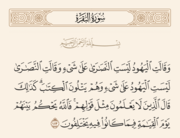 سُورَةُ البَقَرَةِ
وَقَالَتِ ٱلْيَهُودُ لَيْسَتِ ٱلنَّصَٰرَىٰ عَلَىٰ شَىْءٍ وَقَالَتِ ٱلنَّصَٰرَىٰ
لَيْسَتِ ٱلْيَهُودُ عَلَىٰ شَىْءٍ وَهُمْ يَتْلُونَ ٱلْكِتَٰبَ ۗ كَذَٰلِكَ
قَالَ ٱلَّذِينَ لَا يَعْلَمُونَ مِثْلَ قَوْلِهِمْ ۚ فَٱللَّهُ يَحْكُمُ بَيْنَهُمْ
يَوْمَ ٱلْقِيَٰمَةِ فِيمَا كَانُوا۟ فِيهِ يَخْتَلِفُونَ